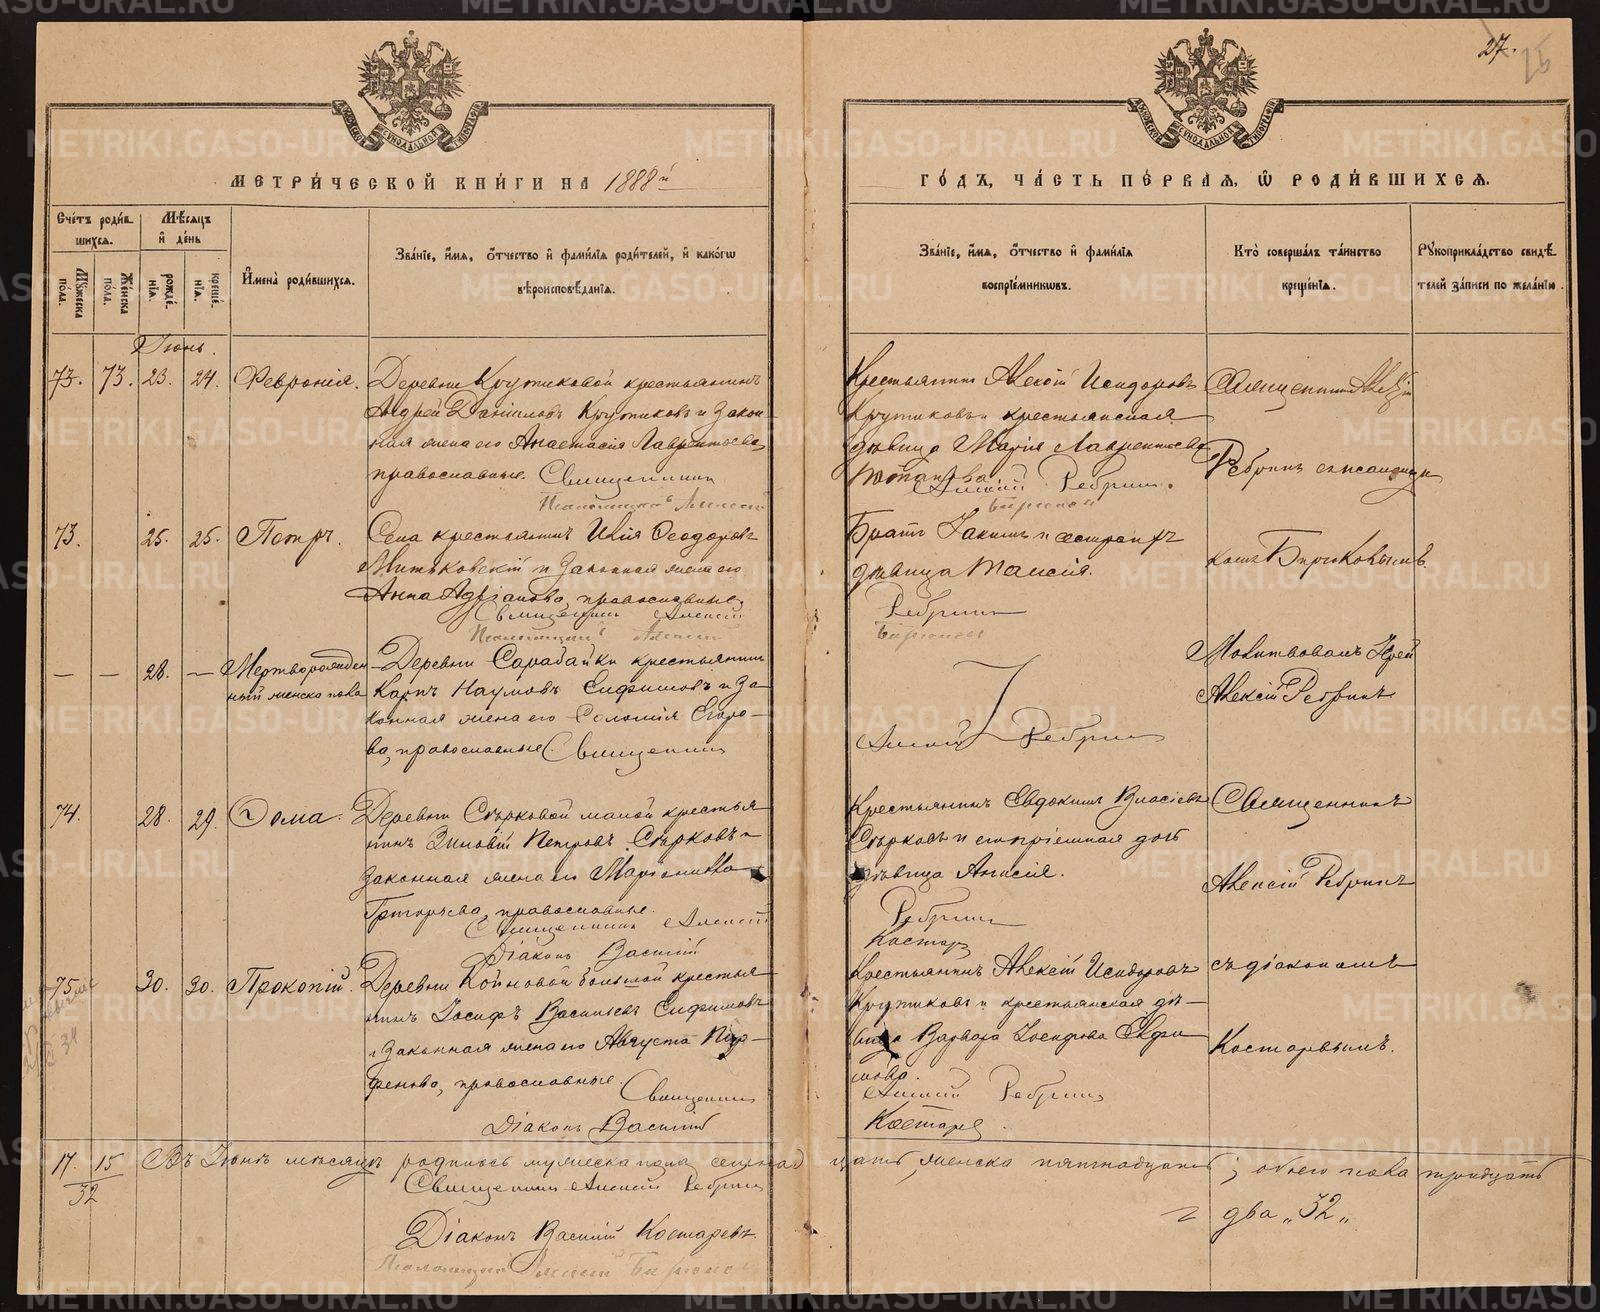 27.
МЕТРИЧЕСКОЙ КНИГИ НА 1888й
ГОДЪ, ЧАСТЬ ПЕРВАЯ, Ѡ РОДИВШИХСЯ.
Счетъ родив
шихся.
Мѣсяцъ
и день
Мужеска
пола.
Женска
пола.
рожде
нія.
креще
нія.
Имена родившихся.
Званіе, имя, отчество и фамилія родителей, и какогѡ
вѣроисповѣданія.
Званіе, имя, отчество и фамилія
воспріемниковъ.
Кто совершалъ таинство
крещенія.
Рукоприкладство свидѣ
телей записи по желанію.
Іюнь.
73. 73. 23. 24. Февронія.
Деревни Крутиковой крестьянинъ
Андрей Даніиловъ Крутиковъ и закон
ная жена его Анастасія Лаврентьева,
православные. Священникъ
Псаломщикъ Алексій
Крестьянинъ Алексій Исидоровъ
Крутиковъ и крестьянская
дѣвица Марія Лаврентьева
Алексій Ребринъ.
Бирюковъ
Священникъ Алексій
Ребринъ съ псаломщи
73. 25. 25. Петръ.
Села крестьянинъ Илія Ѳеодоровъ
Митьковскій и законная жена его
Анна Адріанова, православные.
Священникъ Алексій
Псаломщикъ Алексій
Братъ Іакимъ и сестра
дѣвица Таисія.
Ребринъ
Бирюковъ
комъ Бирюковымъ
— — 28. — Мертворожден
ный женска пола
Деревни Сарабайки крестьянинъ
Карпъ Наумовъ Евфимовъ и за
конная жена его Соломія Егоро
ва, православные. Священникъ
Алексій Ребринъ
Молитвовалъ Іерей
Алексій Ребринъ
74. 28. 29. Ѳома.
Деревни Сѣрковой малой крестья
нинъ Зиновій Петровъ Сѣрковъ и
законная жена его Маріамна
Григорьева, православные.
Священникъ Алексій
Діаконъ Василій
Крестьянинъ Евдокимъ Власіевъ
Сѣрковъ и
дѣвица Анисія.
Ребринъ
Костар
Священникъ
Алексій Ребринъ
75. 30. 30. Прокопій.
Деревни Койновой большой крестья
нинъ Іосифъ Васильевъ Евфимовъ
и законная жена его Августа Пар
фенова, православные.
Священникъ
Діаконъ Василій
Крестьянинъ Алексій Исидоровъ
Крутиковъ и крестьянская дѣ
вица Варвара Іосифова Евфи
мова.
Алексій Ребринъ
Костарев
съ діакономъ
Костаревымъ.
17. 15
32
Въ Іюнѣ мѣсяцѣ родилось мужеска пола семнад цать, женска пятнадцать; обоего пола тридцать
два „32„
Священникъ Алексій Ребринъ
Діаконъ Василій Костаревъ
Псаломщикъ Алексій Бирюковъ
METRIKI.GASO-URAL.RU